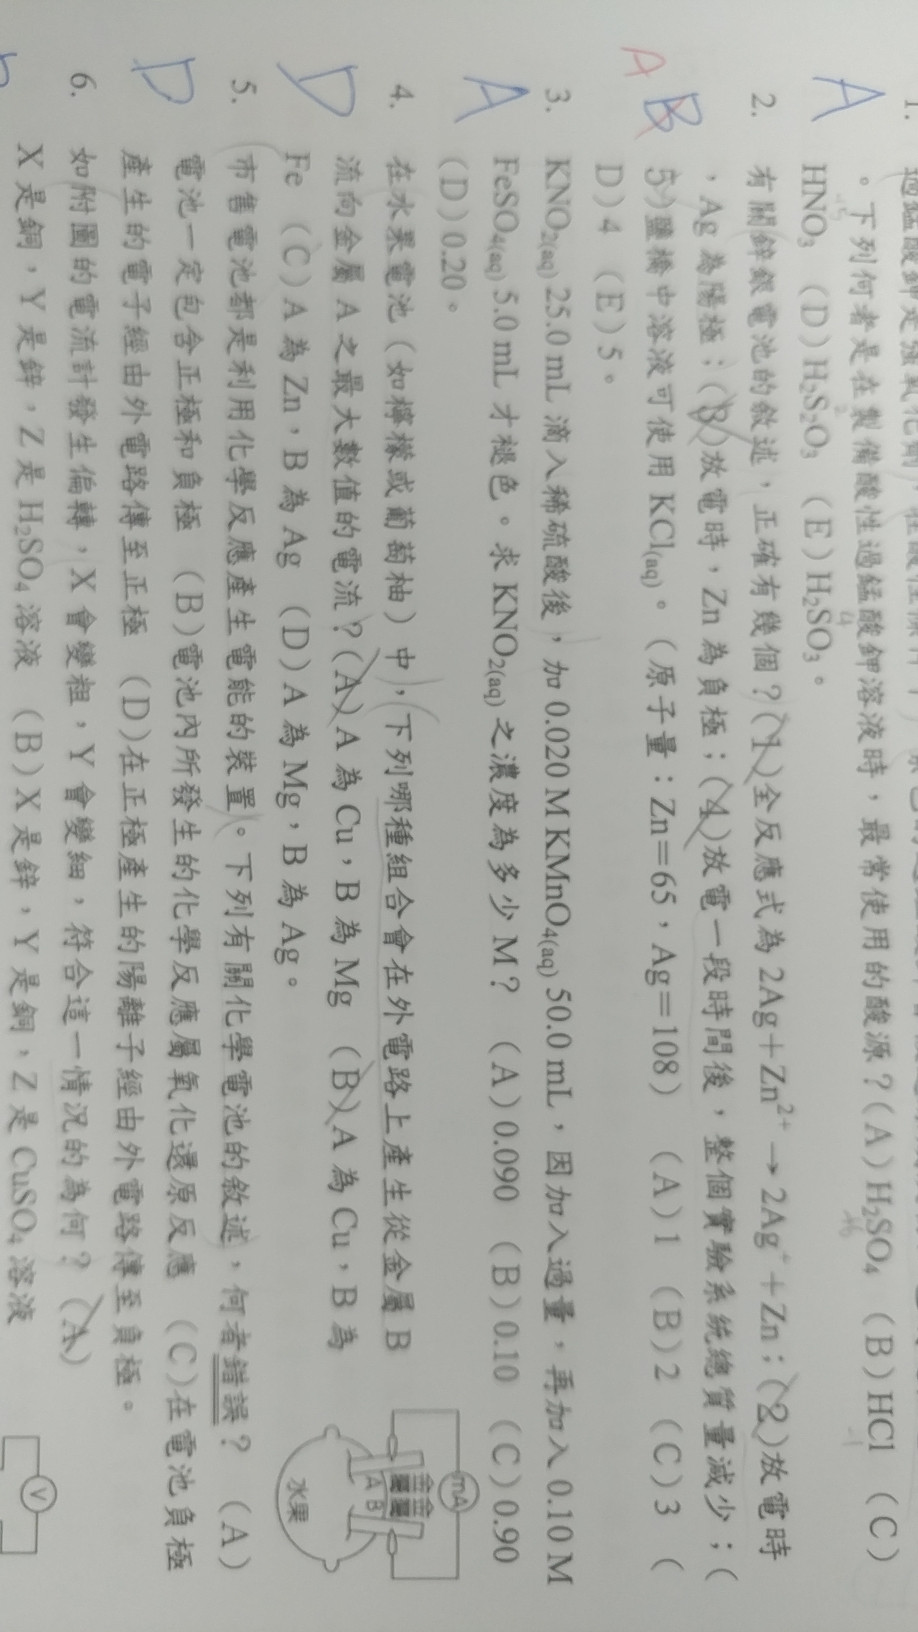 1.
過錳酸鉀是強氧化劑，在酸性條件下
A
。下列何者是在製備酸性過錳酸鉀溶液時，最常使用的酸源？(A)H₂SO₄ (B)HCl (C)
HNO₃ (D)H₂S₂O₃ (E)H₂SO₃。
A B
2. 有關鋅銀電池的敘述，正確有幾個？(1)全反應式為 2Ag＋Zn²⁺→2Ag⁺＋Zn；(2)放電時
，Ag 為陽極；(3)放電時，Zn 為負極；(4)放電一段時間後，整個實驗系統總質量減少；(
5)鹽橋中溶液可使用 KCl(aq)。（原子量：Zn＝65，Ag＝108） (A)1 (B)2 (C)3 (
D)4 (E)5。
A
3. KNO₂(aq) 25.0 mL 滴入稀硫酸後，加 0.020 M KMnO₄(aq) 50.0 mL，因加入過量，再加入 0.10 M
FeSO₄(aq) 5.0 mL 才褪色。求 KNO₂(aq) 之濃度為多少 M？ (A)0.090 (B)0.10 (C)0.90
(D)0.20。
D
4. 在水果電池（如檸檬或葡萄柚）中，下列哪種組合會在外電路上產生從金屬 B
流向金屬 A 之最大數值的電流？(A)A 為 Cu，B 為 Mg (B)A 為 Cu，B 為
Fe (C)A 為 Zn，B 為 Ag (D)A 為 Mg，B 為 Ag。
mA
金金
屬屬
A B
水果
D
5. 市售電池都是利用化學反應產生電能的裝置。下列有關化學電池的敘述，何者錯誤？ (A)
電池一定包含正極和負極 (B)電池內所發生的化學反應屬氧化還原反應 (C)在電池負極
產生的電子經由外電路傳至正極 (D)在正極產生的陽離子經由外電路傳至負極。
6. 如附圖的電流計發生偏轉，X 會變粗，Y 會變細，符合這一情況的為何？ (A)
X 是銅，Y 是鋅，Z 是 H₂SO₄ 溶液 (B)X 是鋅，Y 是銅，Z 是 CuSO₄ 溶液
V